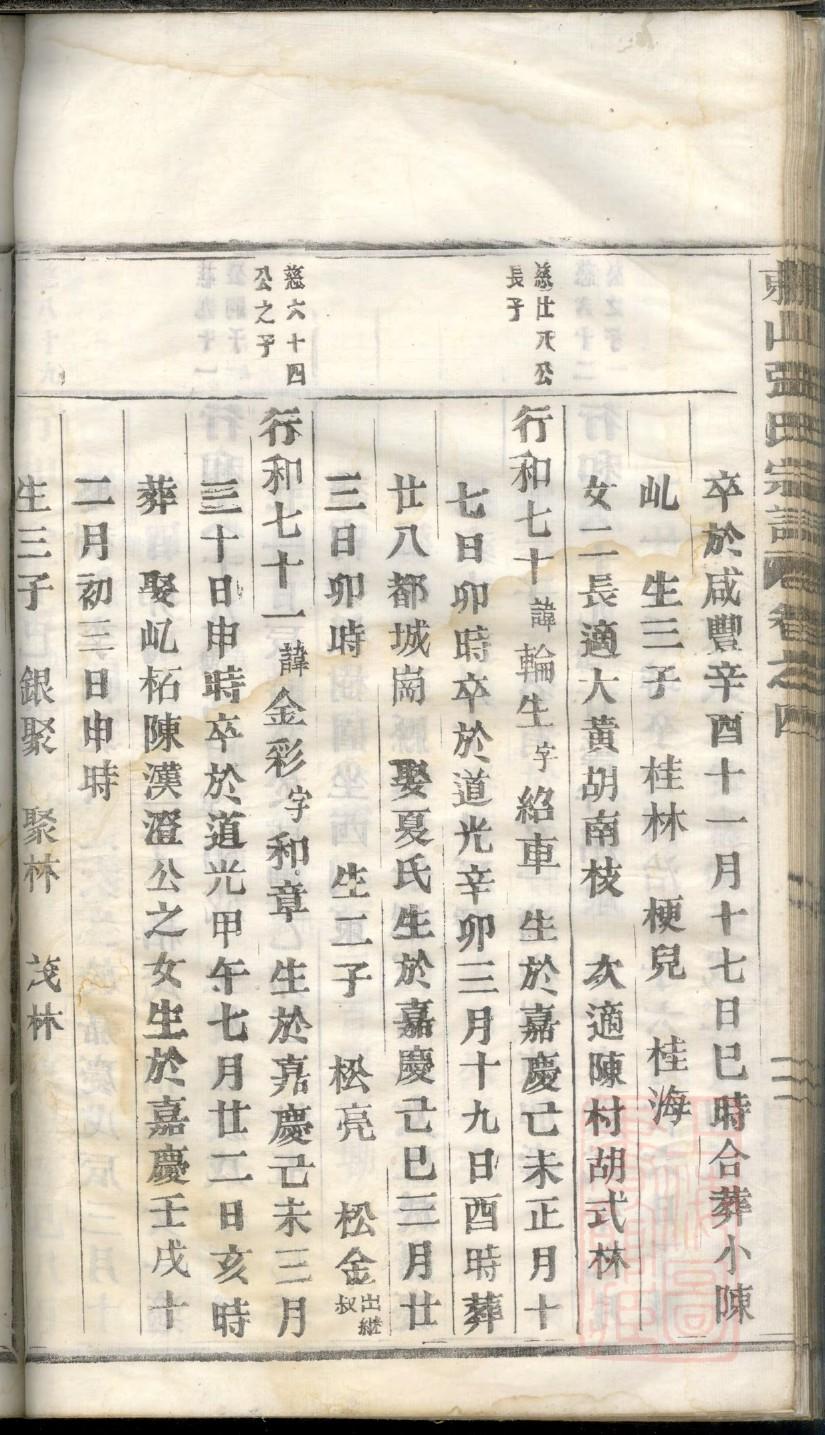 山張氏宗譜 卷之四
卒於咸豐辛酉十一月十七日巳時合葬小陳
乢 生三子 桂林 梗兒 桂海
女二長適大黃胡南枝 次適陳村胡式林
慈廿六公
長子
行和七十諱輪生字紹車 生於嘉慶己未正月十
七日卯時卒於道光辛卯三月十九日酉時葬
廿八都城崗 娶夏氏生於嘉慶己巳三月廿
三日卯時 生二子 松亮 松金出繼叔
慈六十四
公之子
行和七十一諱金彩字和章 生於嘉慶己未三月
三十日申時卒於道光甲午七月廿二日亥時
葬 娶乢柘陳漢澄公之女生於嘉慶壬戌十
二月初三日申時
生三子 銀聚 聚林 茂林